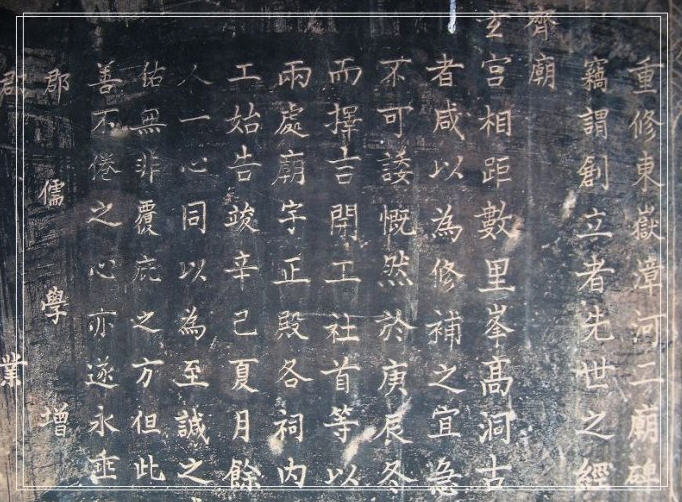 重修東嶽漳河二廟碑
竊謂創立者先世之經
齊廟
玄宮相距數里峯高洞古
者咸以為修補之宜急
不可諉慨然於庚辰冬
而擇吉開工社首等以
兩處廟宇正殿各祠內
工始告竣辛巳夏月餘
人一心同以為至誠之
佑無非覆庇之方但此
善不倦之心亦遂永垂
郡儒學增
郡 業